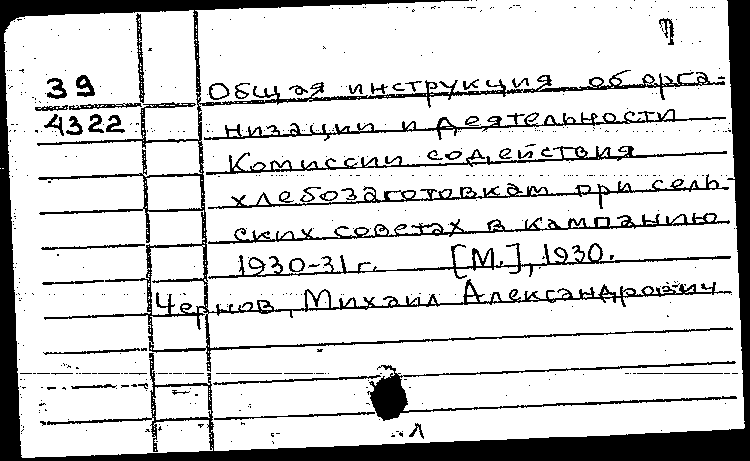 39 Общая инструкция об орга-
4322 низации и деятельности
Комиссии содействия
хлебозаготовкам при сель-
ских советах в кампанию
1930-31 г. [М.], 1930.
Чернов, Михаил Александрович
л